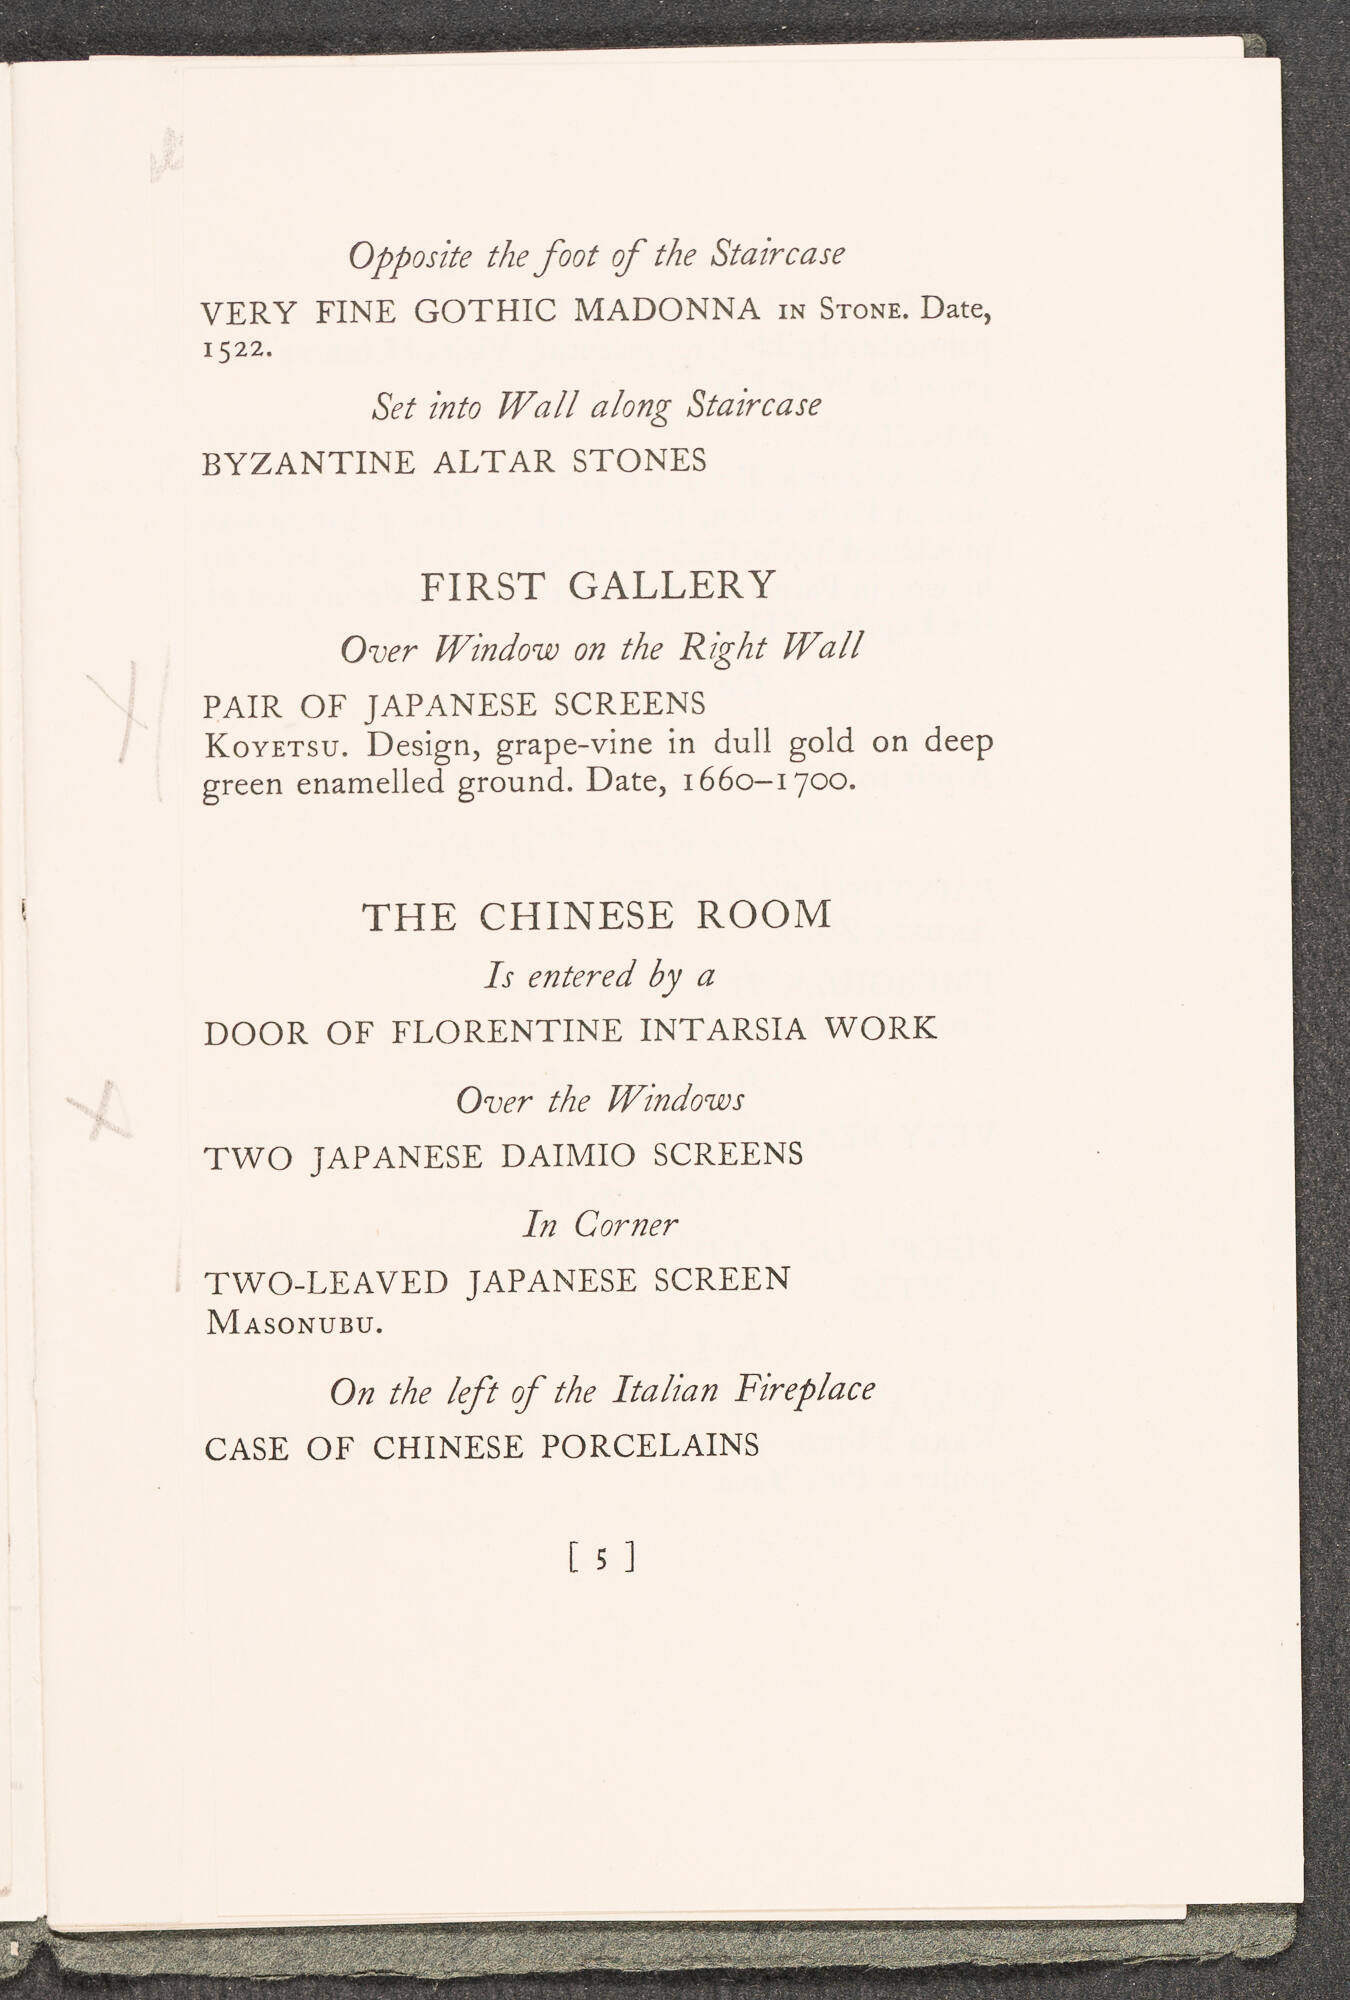 Opposite the foot of the Staircase
VERY FINE GOTHIC MADONNA IN STONE. Date,
1522.
Set into Wall along Staircase
BYZANTINE ALTAR STONES
FIRST GALLERY
Over Window on the Right Wall
PAIR OF JAPANESE SCREENS
KOYETSU. Design, grape-vine in dull gold on deep
green enamelled ground. Date, 1660–1700.
THE CHINESE ROOM
Is entered by a
DOOR OF FLORENTINE INTARSIA WORK
Over the Windows
TWO JAPANESE DAIMIO SCREENS
In Corner
TWO-LEAVED JAPANESE SCREEN
MASONUBU.
On the left of the Italian Fireplace
CASE OF CHINESE PORCELAINS
[ 5 ]